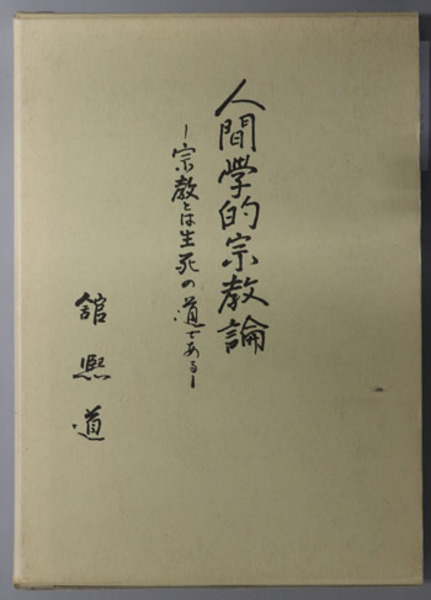 人間學的宗教論
―宗教とは生死の道である―
舘熈道